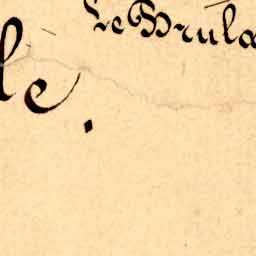 Le Brula
lé.